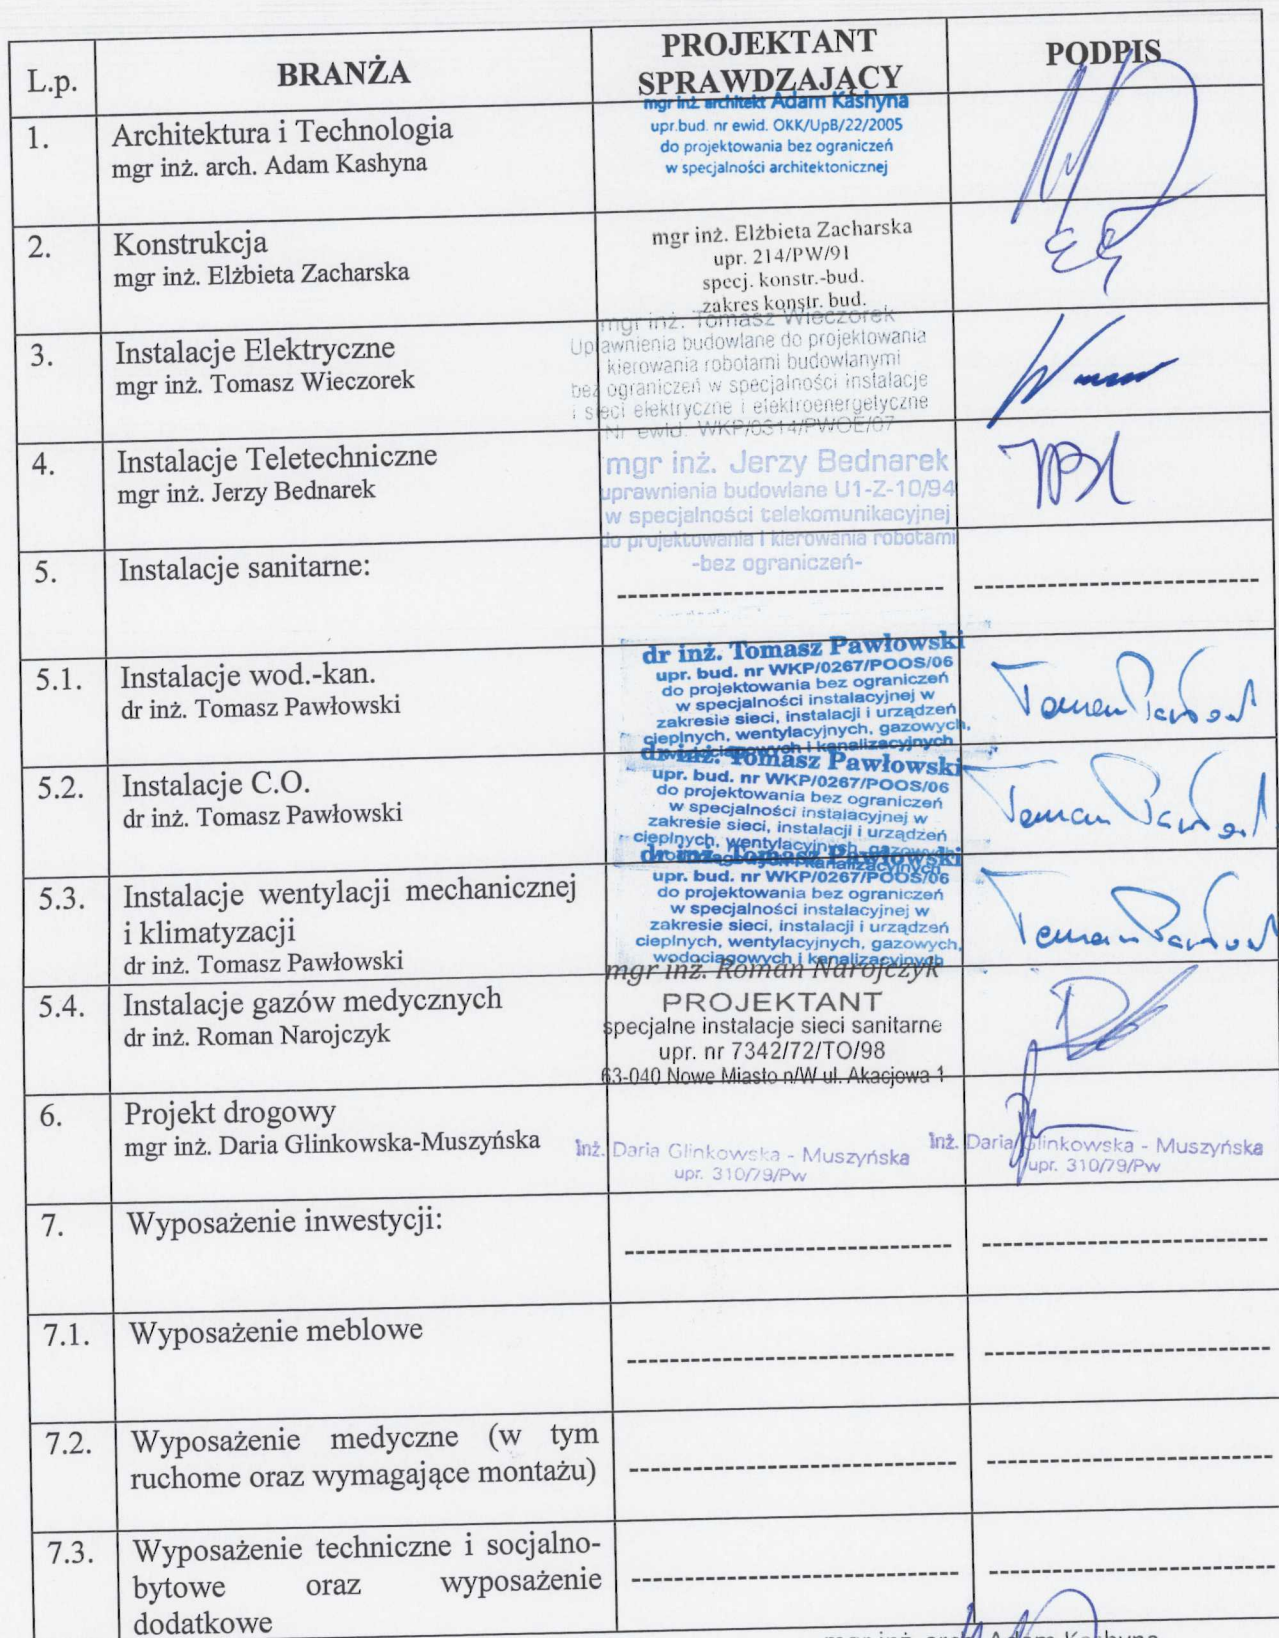 L.p.
BRANŻA
PROJEKTANT
SPRAWDZAJĄCY
PODPIS
1.
Architektura i Technologia
mgr inż. arch. Adam Kashyna
mgr inż. architekt Adam Kashyna
upr.bud. nr ewid. OKK/UpB/22/2005
do projektowania bez ograniczeń
w specjalności architektonicznej
2.
Konstrukcja
mgr inż. Elżbieta Zacharska
mgr inż. Elżbieta Zacharska
upr. 214/PW/91
specj. konstr.-bud.
zakres konstr. bud.
3.
Instalacje Elektryczne
mgr inż. Tomasz Wieczorek
mgr inż. Tomasz Wieczorek
Uprawnienia budowlane do projektowania
kierowania robotami budowlanymi
bez ograniczeń w specjalności instalacje
i sieci elektryczne i elektroenergetyczne
Nr ewid. WKP/0314/PWOE/07
4.
Instalacje Teletechniczne
mgr inż. Jerzy Bednarek
mgr inż. Jerzy Bednarek
uprawnienia budowlane U1-Z-10/94
w specjalności telekomunikacyjnej
do projektowania i kierowania robotami
-bez ograniczeń-
5.
Instalacje sanitarne:
5.1.
Instalacje wod.-kan.
dr inż. Tomasz Pawłowski
dr inż. Tomasz Pawłowski
upr. bud. nr WKP/0267/POOS/06
do projektowania bez ograniczeń
w specjalności instalacyjnej w
zakresie sieci, instalacji i urządzeń
cieplnych, wentylacyjnych, gazowych,
wodociągowych i kanalizacyjnych
5.2.
Instalacje C.O.
dr inż. Tomasz Pawłowski
dr inż. Tomasz Pawłowski
upr. bud. nr WKP/0267/POOS/06
do projektowania bez ograniczeń
w specjalności instalacyjnej w
zakresie sieci, instalacji i urządzeń
cieplnych, wentylacyjnych, gazowych
wodociągowych i kanalizacyjnych
5.3.
Instalacje wentylacji mechanicznej
i klimatyzacji
dr inż. Tomasz Pawłowski
dr inż. Tomasz Pawłowski
upr. bud. nr WKP/0267/POOS/06
do projektowania bez ograniczeń
w specjalności instalacyjnej w
zakresie sieci, instalacji i urządzeń
cieplnych, wentylacyjnych, gazowych,
wodociągowych i kanalizacyjnych
5.4.
Instalacje gazów medycznych
dr inż. Roman Narojczyk
mgr inż. Roman Narojczyk
PROJEKTANT
specjalne instalacje sieci sanitarne
upr. nr 7342/72/TO/98
63-040 Nowe Miasto n/W ul. Akacjowa 1
6.
Projekt drogowy
mgr inż. Daria Glinkowska-Muszyńska
Inż. Daria Glinkowska - Muszyńska
upr. 310/79/Pw
Inż. Daria Glinkowska - Muszyńska
upr. 310/79/Pw
7.
Wyposażenie inwestycji:
7.1.
Wyposażenie meblowe
7.2.
Wyposażenie medyczne (w tym
ruchome oraz wymagające montażu)
7.3.
Wyposażenie techniczne i socjalno-
bytowe oraz wyposażenie
dodatkowe
mgr inż. arch. Adam Kashyna